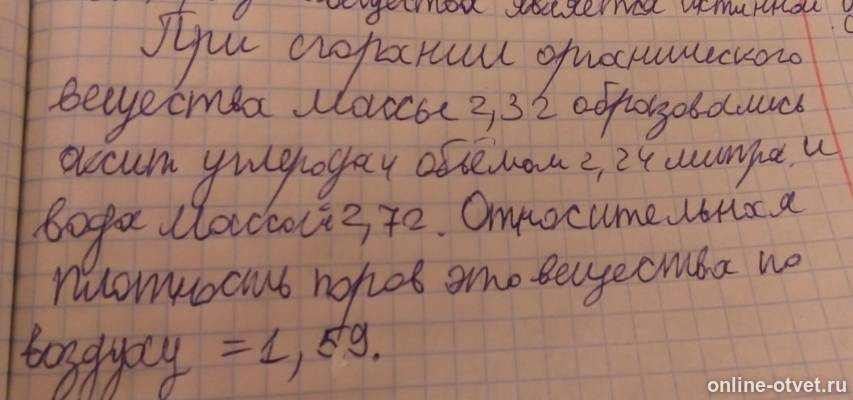 вещества является истинной
При сгорании органического
вещества массы 2,32 образовались
оксит углерода 4 объёмом 2,24 литра и
вода массой 2,72. Относительная
плотность поров это вещества по
воздуху = 1,59.
online-otvet.ru